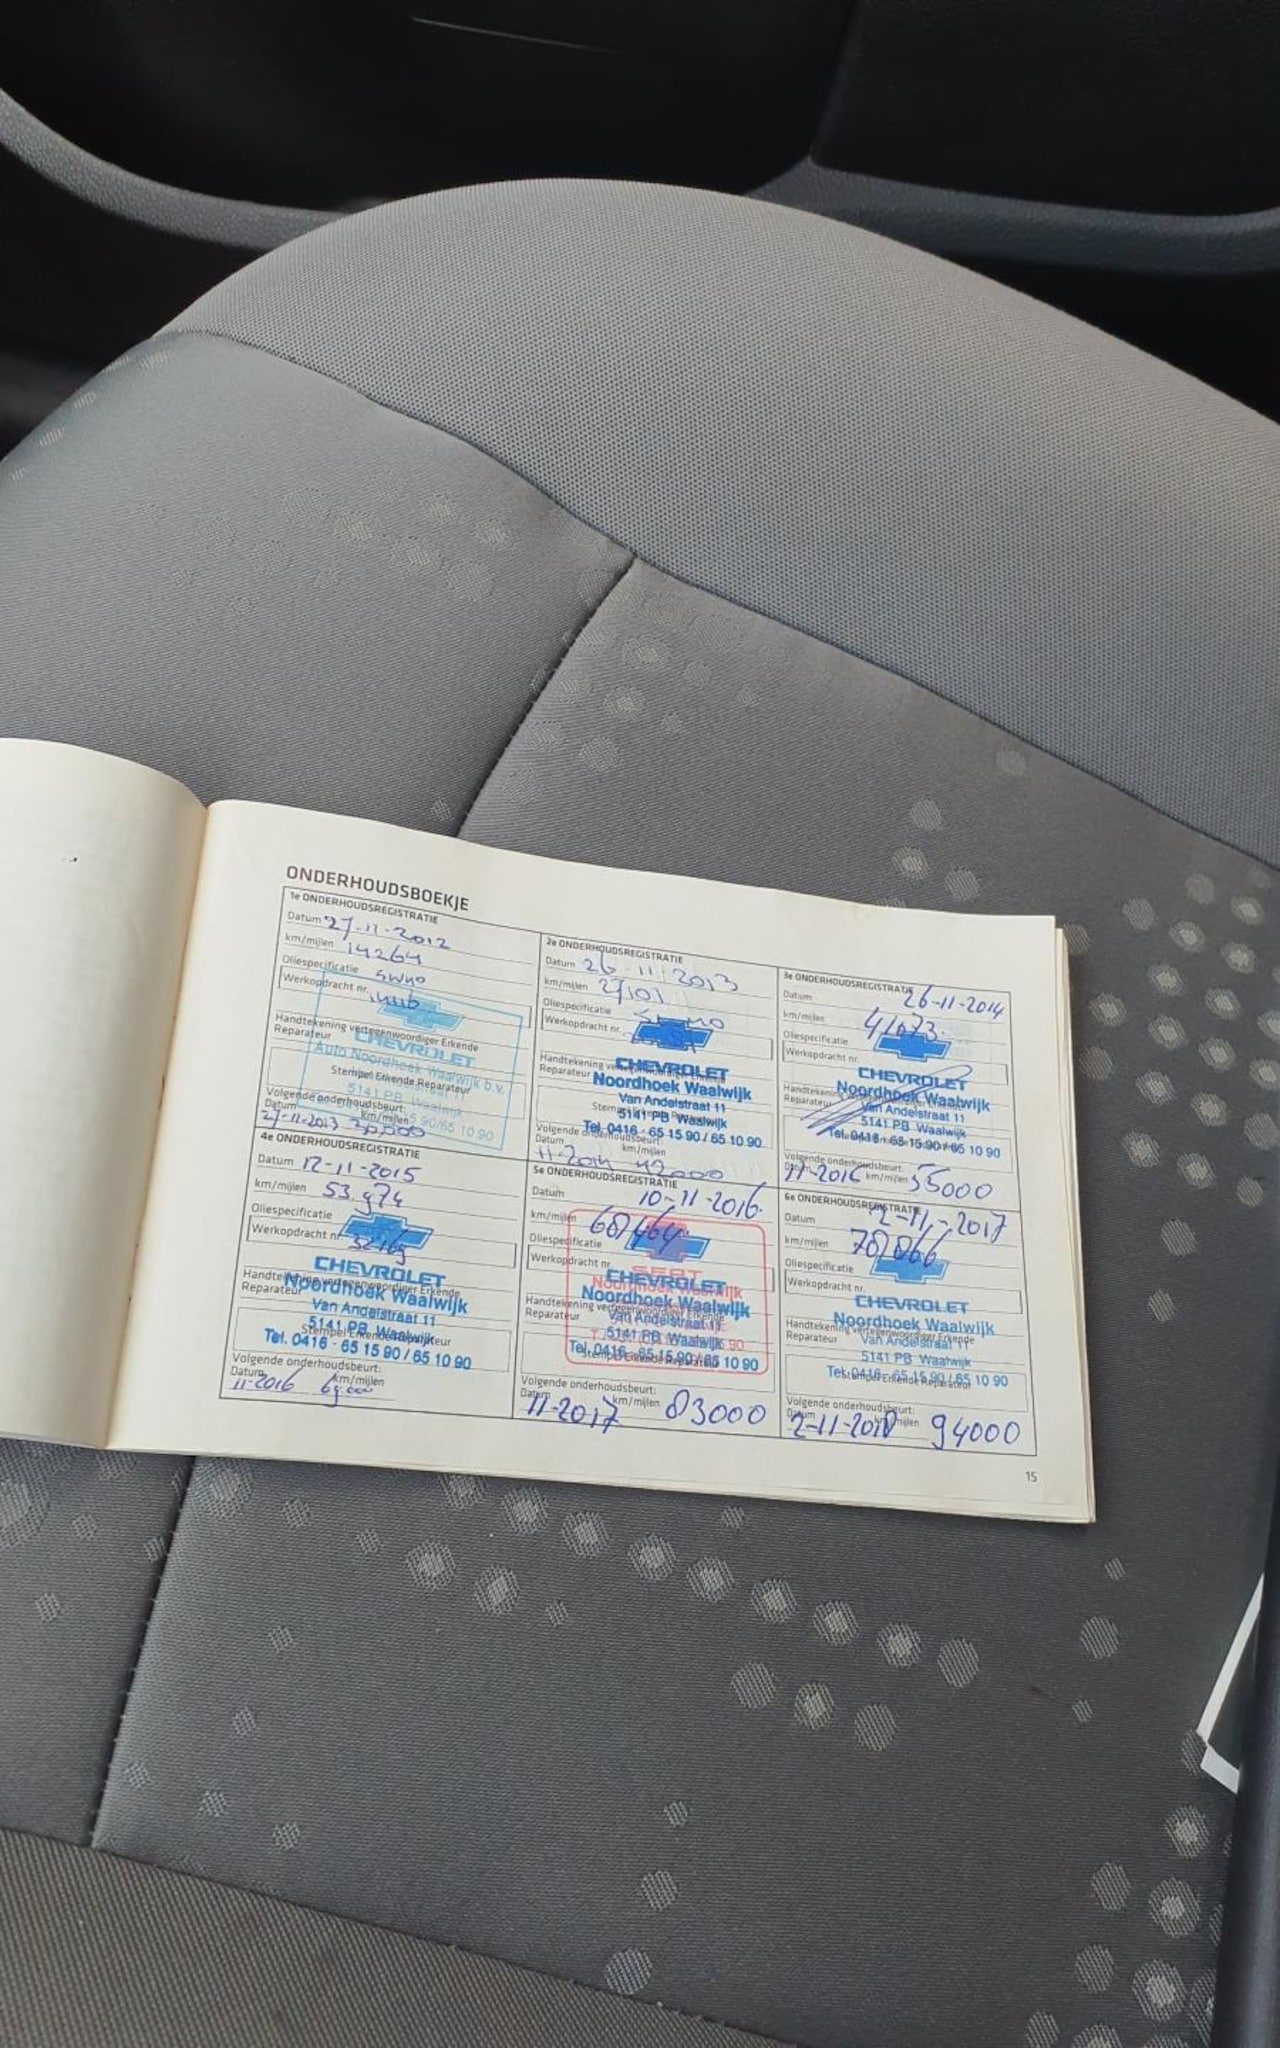 ONDERHOUDSBOEKJE
1e ONDERHOUDSREGISTRATIE
Datum 27-11-2012
km/mijlen 14264
Oliespecificatie 5W40
Werkopdracht nr.
Handtekening vertegenwoordiger Erkende
Reparateur
CHEVROLET
Auto Noordhoek Waalwijk b.v.
Stempel Erkende Reparateur
5141 PB Waalwijk
Volgende onderhoudsbeurt:
Datum km/mijlen
27-11-2013 30,000
2e ONDERHOUDSREGISTRATIE
Datum 26-11-2013
km/mijlen 27101
Oliespecificatie
Werkopdracht nr.
Handtekening
Reparateur
CHEVROLET
Noordhoek Waalwijk
Van Andelstraat 11
5141 PB Waalwijk
Tel. 0416 - 65 15 90 / 65 10 90
Volgende onderhoudsbeurt:
Datum km/mijlen
11-2014 42000
3e ONDERHOUDSREGISTRATIE
Datum 26-11-2014
km/mijlen 41073
Oliespecificatie
Werkopdracht nr.
Handtekening
Reparateur
CHEVROLET
Noordhoek Waalwijk
Van Andelstraat 11
5141 PB Waalwijk
Tel. 0416 - 65 15 90 / 65 10 90
Volgende onderhoudsbeurt:
Datum km/mijlen
11-2016 55000
4e ONDERHOUDSREGISTRATIE
Datum 12-11-2015
km/mijlen 53.974
Oliespecificatie
Werkopdracht nr.
Handtekening vertegenwoordiger Erkende
Reparateur
CHEVROLET
Noordhoek Waalwijk
Van Andelstraat 11
5141 PB Waalwijk
Stempel Erkende Reparateur
Tel. 0416 - 65 15 90 / 65 10 90
Volgende onderhoudsbeurt:
Datum km/mijlen
11-2016 69.000
5e ONDERHOUDSREGISTRATIE
Datum 10-11-2016
km/mijlen 68464
Oliespecificatie
Werkopdracht nr.
SEAT
CHEVROLET
Handtekening vertegenwoordiger Erkende
Reparateur
Noordhoek Waalwijk
Van Andelstraat 11
5141 PB Waalwijk
Tel. 0416 - 65 15 90 / 65 10 90
Stempel Erkende Reparateur
Volgende onderhoudsbeurt:
Datum km/mijlen
11-2017 83000
6e ONDERHOUDSREGISTRATIE
Datum 2-11-2017
km/mijlen 78066
Oliespecificatie
Werkopdracht nr.
CHEVROLET
Noordhoek Waalwijk
Handtekening vertegenwoordiger Erkende
Reparateur
Van Andelstraat 11
5141 PB Waalwijk
Tel. 0416 - 65 15 90 / 65 10 90
Stempel Erkende Reparateur
Volgende onderhoudsbeurt:
Datum km/mijlen
2-11-2018 94000
15